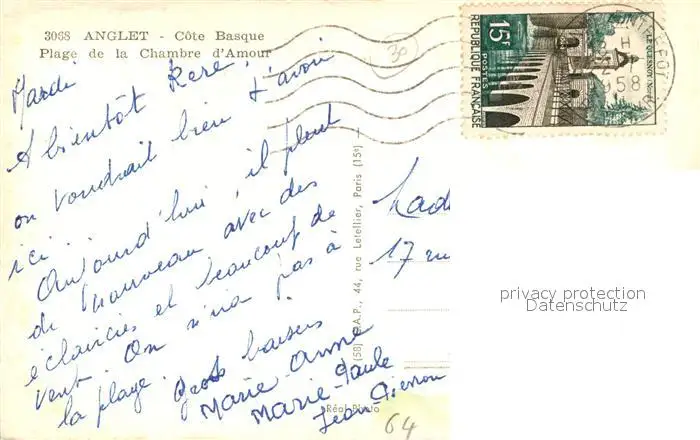 3068 ANGLET - Côte Basque
Plage de la Chambre d'Amour
30
15F
POSTES
RÉPUBLIQUE FRANÇAISE
LE QUESNOY (NORD)
H
1958
Mardi
A bientôt
on voudrait bien t'avoir
ici. Aujourd'hui, il pleut
de nouveau avec des
éclaircies et beaucoup de
vent. On n'ira pas à
la plage. Gros baisers
Marie-Anne
Marie-Paule
Jean-Pierre
(58) 44, rue Letellier, Paris (15e)
17
privacy protection
Datenschutz
Réal-Photo
64